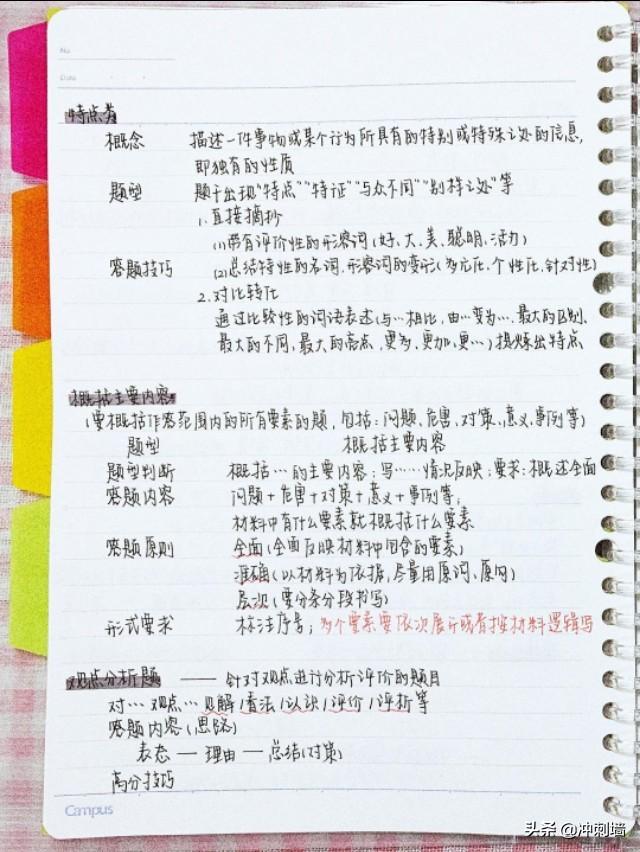 No.
Date
特点类
概念 描述一件事物或某个行为所具有的特别或特殊之处的信息,
即独有的性质
题型 题干出现"特点""特征""与众不同""别样之处"等
1.直接摘抄
(1)带有评价性的形容词(好、大、美、聪明、活力)
答题技巧 (2)总结特性的名词、形容词的变形(多元化、个性化、针对性)
2.对比转化
通过比较性的词语表述(与…相比,由…变为…、最大的区别、
最大的不同、最大的亮点,更为、更加、更…)提炼出特点
概括主要内容
(要概括作答范围内的所有要素的题,包括:问题、危害、对策、意义、事例等)
题型 概括主要内容
题型判断 概括…的主要内容;写……情况反映;要求:概述全面
答题内容 问题+危害+对策+意义+事例等,
材料中有什么要素就概括什么要素
答题原则 全面(全面反映材料中包含的要素)
准确(以材料为依据,尽量用原词、原句)
层次(要分条分段书写)
形式要求 标注序号;多个要素要依次展开或者按材料逻辑写
观点分析题 —— 针对观点进行分析评价的题目
对…观点…见解/看法/认识/评价/评析等
答题内容(思路)
表态—理由—总结(对策)
高分技巧
Campus
头条@冲刺墙